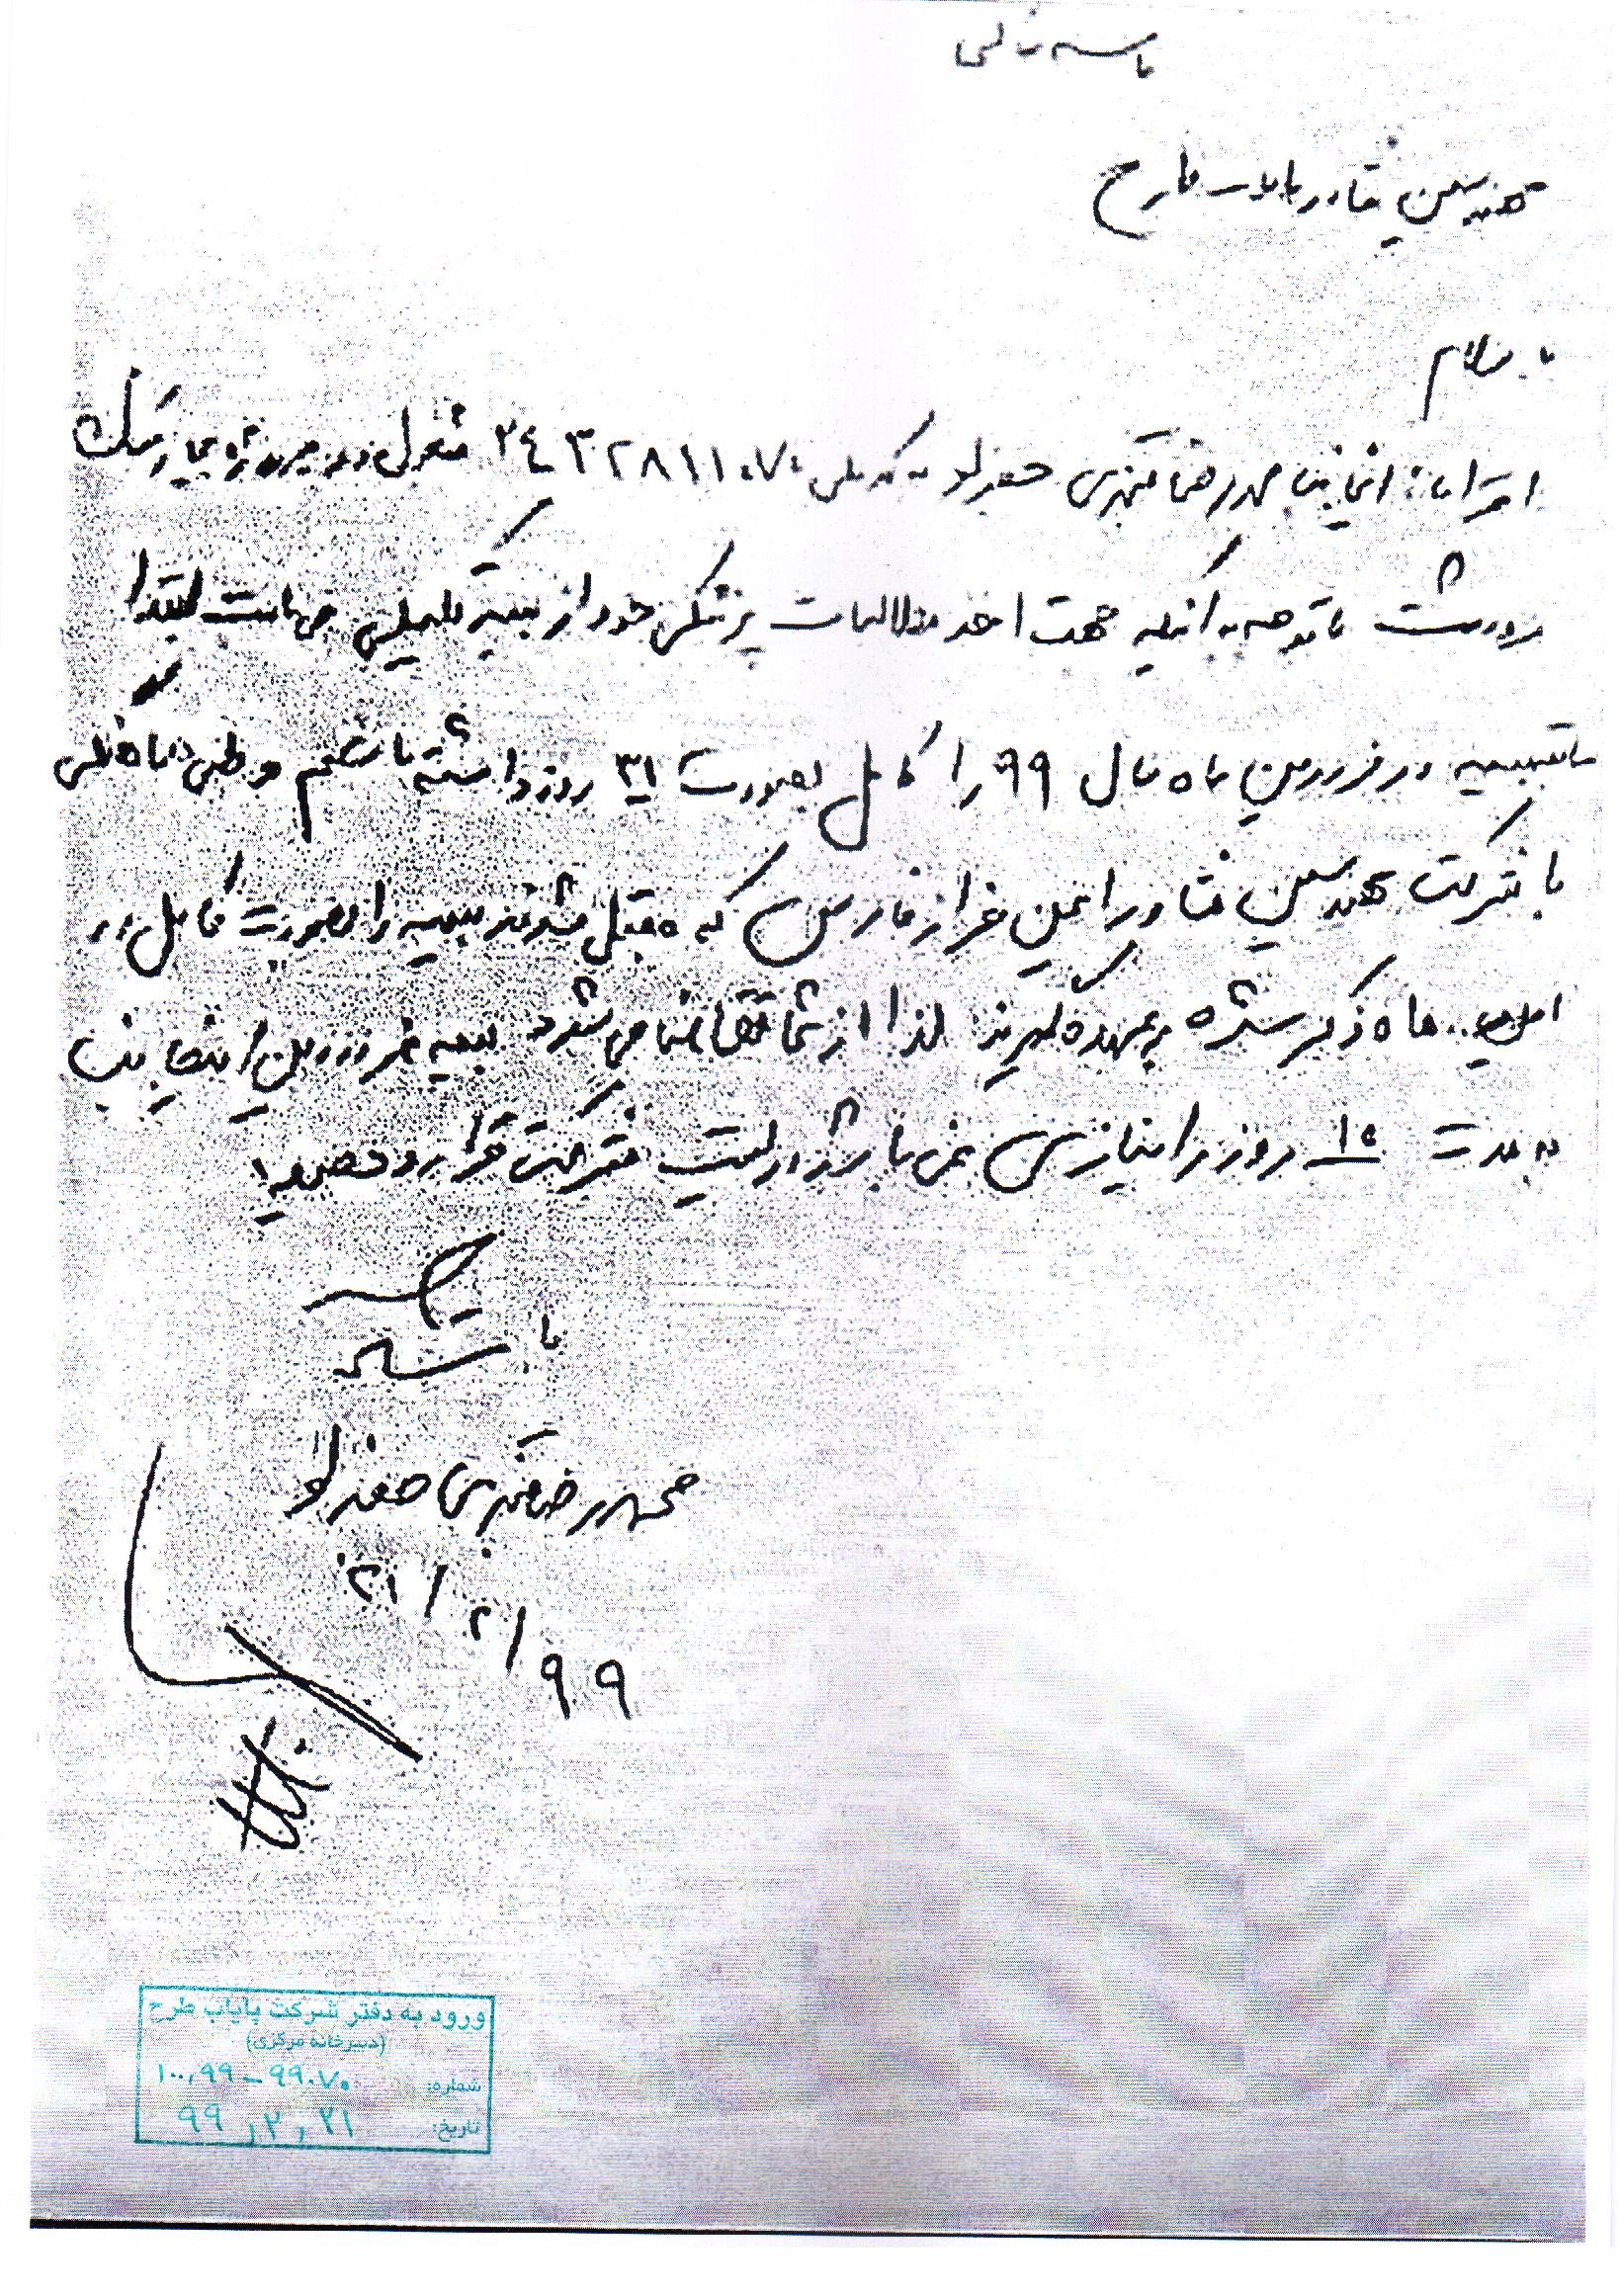 باسمه تعالی
مهندسین مشاور پایاب طرح
با سلام
احتراما؛ اینجانب محمدرضا قنبری صفرلو به کد ملی ۲۴۳۲۸۱۱۰۷۰ مشغول در پروژه
مرودشت با توجه به اینکه جهت اخذ مطالبات پزشکی خود از بیمه تکمیلی می بایست ابتدا
بیمه در فروردین ماه سال ۹۹ را کامل بصورت ۳۱ روز داشته باشم و طی
با شرکت مهندسین مشاور ایمن فراز فارس که متقبل شدند بیمه را بصورت کامل در
ماه ذکر شده بر عهده گیرند. لذا از شما تقاضا می شود بیمه فروردین اینجانب
به مدت ۱۵ روز را نیازی نمی باشد در لیست شرکت قرار دهید
با تشکر
محمدرضا قنبری صفرلو
۹۹/۲/۳۱
ورود به دفتر شرکت پایاب طرح
(دبیرخانه مرکزی)
شماره: ۱۰۰,۹۹ – ۹۹۰۷۰
تاریخ: ۹۹,۲,۳۱